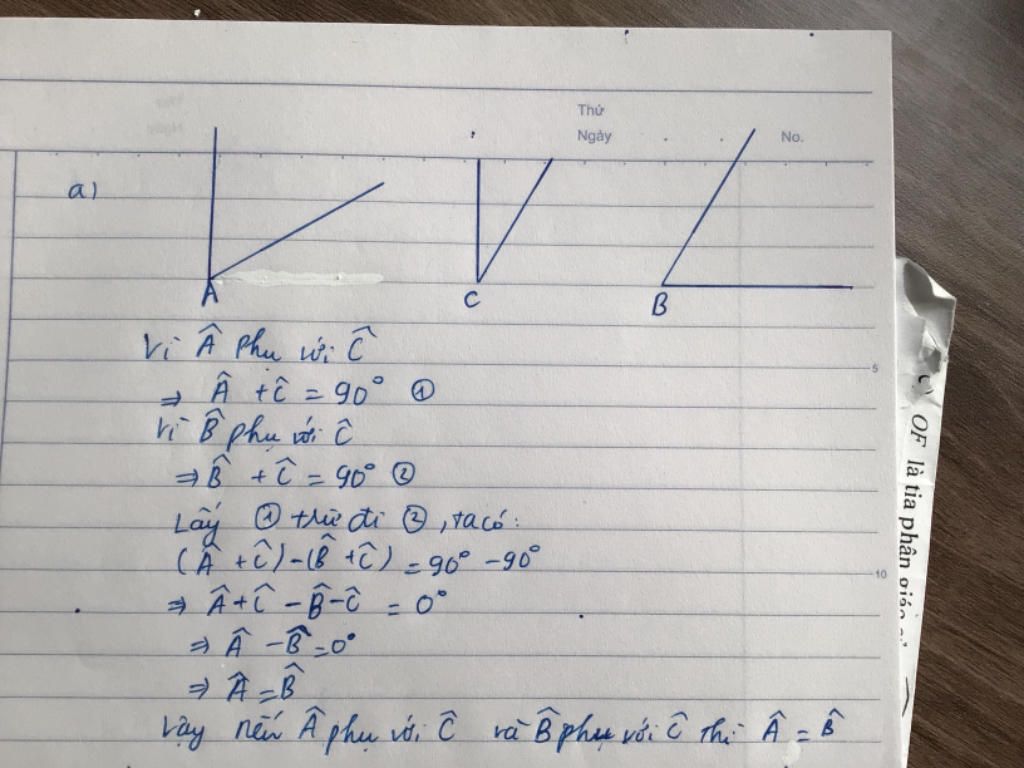 Thứ
Ngày
No.
a)
A
C
B
Vì Â phụ với Ĉ
⇒ Â + Ĉ = 90° ①
Vì B̂ phụ với Ĉ
⇒ B̂ + Ĉ = 90° ②
Lấy ① trừ đi ②, ta có:
(Â + Ĉ) - (B̂ + Ĉ) = 90° - 90°
⇒ Â + Ĉ - B̂ - Ĉ = 0°
⇒ Â - B̂ = 0°
⇒ Â = B̂
Vậy nếu Â phụ với Ĉ và B̂ phụ với Ĉ thì Â = B̂
5
10
c)
OF là tia phân giác